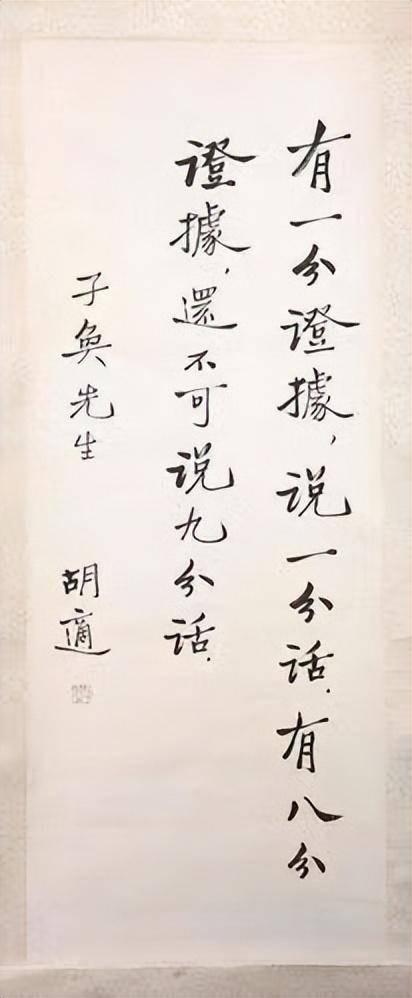 有一分證據，说一分话.有八分
證據，還不可说九分话.
子奐先生
胡適